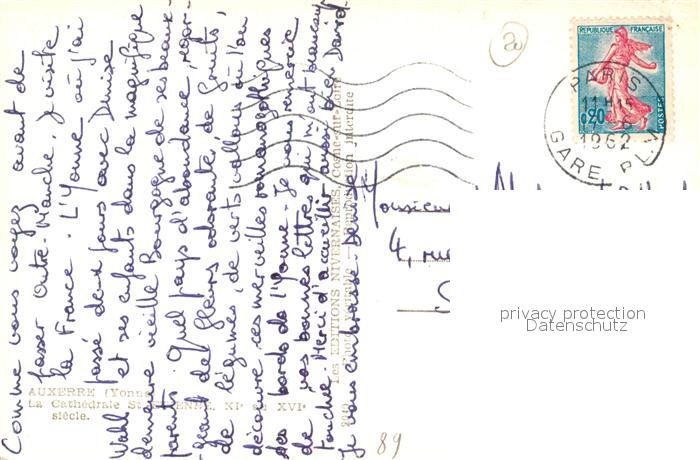 Comme vous voyez avant de
passer Outre-Manche, je visite
la France. L'Yonne où j'ai
passé deux jours avec Denise
Wahl et ses enfants dans la magnifique
demeure vieille Bourgogne de ses beaux-
parents. Quel pays d'abondance regor-
geant de fleurs odorantes, de fruits,
de légumes, de verts vallons où l'on
découvre ces merveilles romanesques
des bords de l'Yonne. Je vous remercie
de vos bonnes lettres qui m'ont beaucoup
touchée. Merci d'accueillir aussi bien David
Je vous embrasse. Denise
Monsieur
4, rue
Les EDITIONS NIVERNAISES, Cosne-sur-Loire
Photo véritable - Reproduction interdite
AUXERRE (Yonne)
La Cathédrale St-ETIENNE, XIe au XVIe
siècle.
20
89
REPUBLIQUE FRANÇAISE
0,20
POSTES
PARIS
11H15
1962
GARE P.L.M
privacy protection
Datenschutz